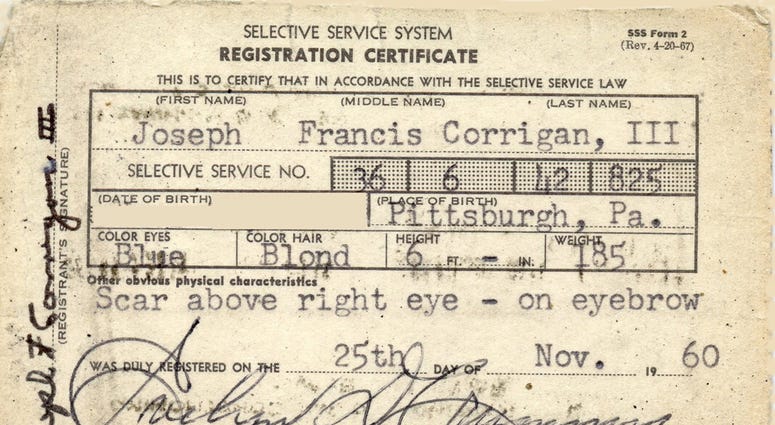 SELECTIVE SERVICE SYSTEM
SSS Form 2
REGISTRATION CERTIFICATE
(Rev. 4-20-67)
THIS IS TO CERTIFY THAT IN ACCORDANCE WITH THE SELECTIVE SERVICE LAW
(FIRST NAME) (MIDDLE NAME) (LAST NAME)
Joseph Francis Corrigan, III
SELECTIVE SERVICE NO. 36 6 42 825
(DATE OF BIRTH) (PLACE OF BIRTH)
Pittsburgh, Pa.
COLOR EYES COLOR HAIR HEIGHT WEIGHT
Blue Blond 6 FT. - IN. 185
Other obvious physical characteristics
Scar above right eye - on eyebrow
WAS DULY REGISTERED ON THE 25th DAY OF Nov. 19 60
(REGISTRANT'S SIGNATURE)
F Corrigan III